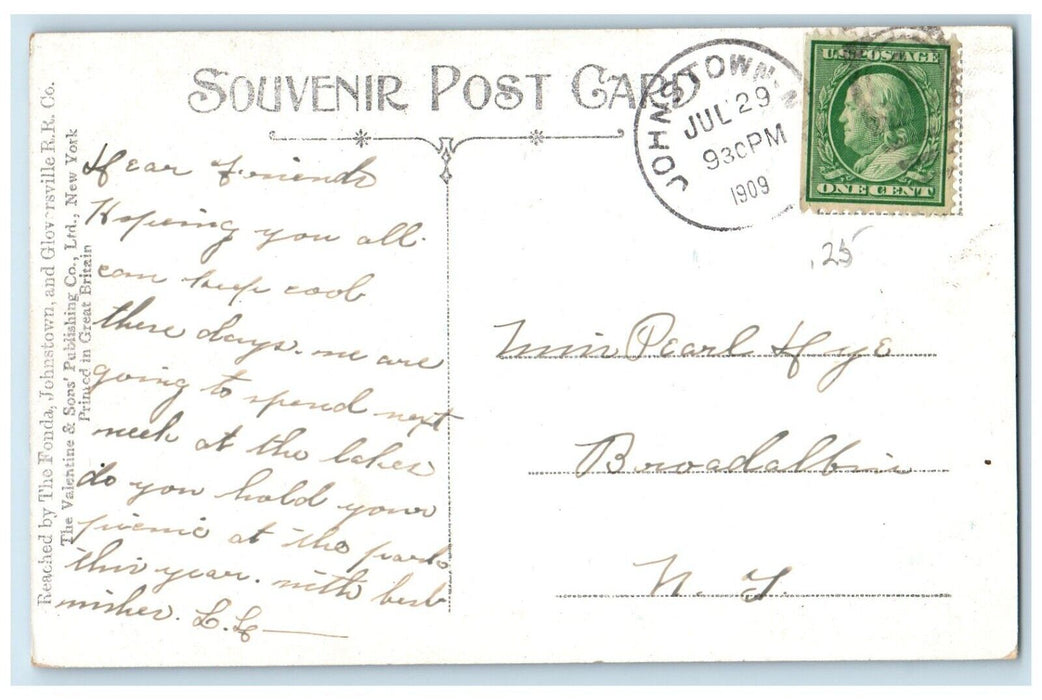 SOUVENIR POST CARD
JOHNSTOWN N
JUL 29
930PM
1909
U.S. POSTAGE
ONE CENT
.25
Reached by The Fonda, Johnstown, and Gloversville R.R. Co.
The Valentine & Sons' Publishing Co., Ltd., New York
Printed in Great Britain
Dear Friends
Hoping you all
can keep cool
these days. we are
going to spend next
week at the lakes
do you hold your
picnic at the park
this year. with best
wishes. L. L.
Miss Pearl Hye
Broadalbin
N. Y.